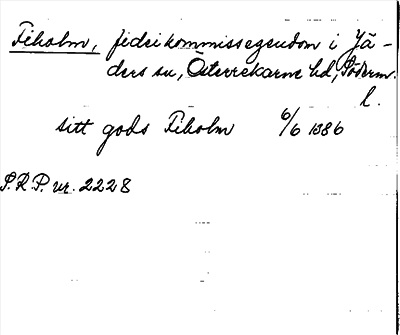 Fiholm, fideikommissegendom i Jä-
ders sn, Österrekarne hd, Söderm.
l.
sitt gods Fiholm 6/6 1386
S.R.P. nr. 2228